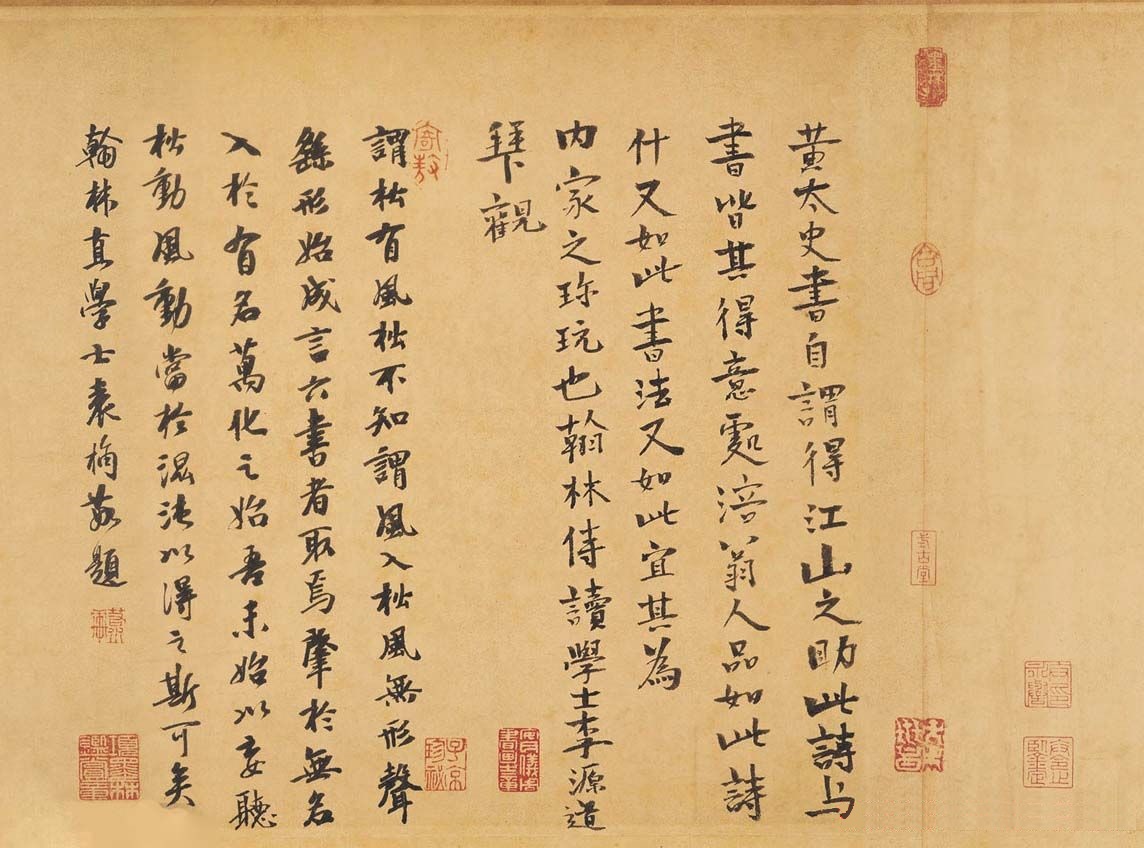 黃太史書自謂得江山之助此詩與
書皆其得意處涪翁人品如此詩
什又如此書法又如此宜其為
内家之珎玩也翰林侍讀學士李源道
拜觀
謂松有風松不知謂風入松風無形聲
繇形始成言六書者取焉肇於無名
入於有名萬化之始吾未始以妄聽
松動風動當於濕法以得之斯可矣
翰林直學士袁桷敬題
子京珍祕
安儀周家珍藏